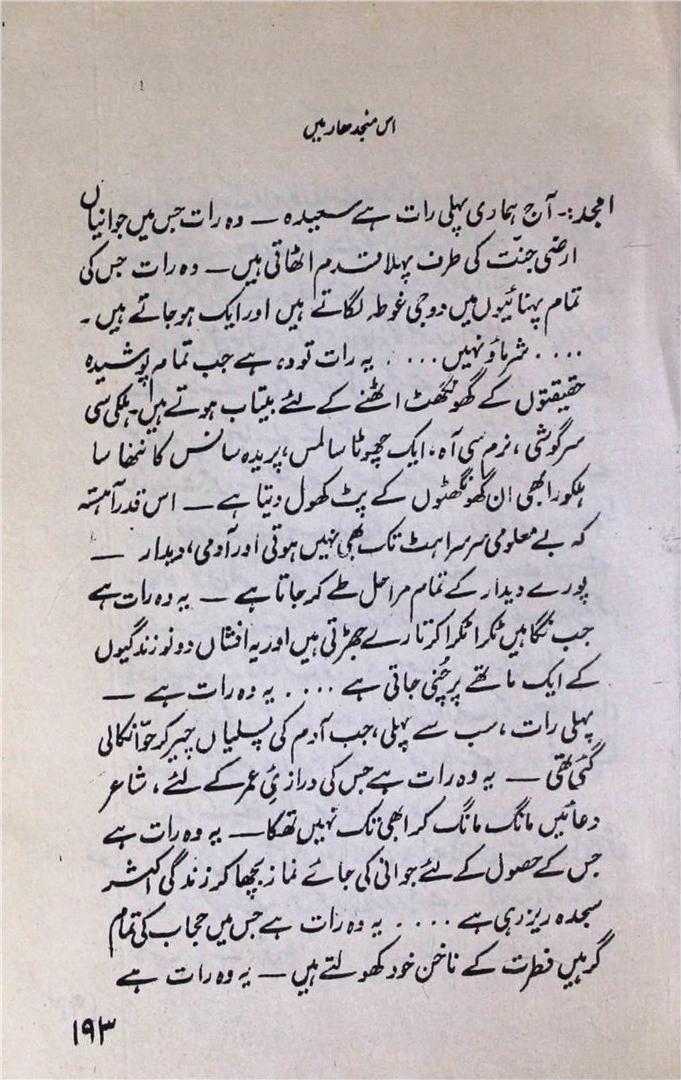 اس منجدھار میں
امجد:۔ آج ہماری پہلی رات ہے سعیدہ — وہ رات جس میں جوانیاں
ارضی جنّت کی طرف پہلا قدم اٹھاتی ہیں — وہ رات جس کی
تمام پہنائیوں میں دو جی غوطہ لگاتے ہیں اور ایک ہو جاتے ہیں ۔
.... شرماؤ نہیں .... یہ رات تو وہ ہے جب تمام پوشیدہ
حقیقتوں کے گھونگھٹ اٹھنے کے لئے بیتاب ہوتے ہیں۔ ہلکی سی
سرگوشی ، نرم سی آہ ، ایک چھوٹا سا لمس ، پریدہ سانس کا ننھا سا
ہلکورا بھی ان گھونگھٹوں کے پٹ کھول دیتا ہے — اس قدر آہستہ
کہ بے معلومی سرسراہٹ تک بھی نہیں ہوتی اور آدمی ، دیدار —
پورے دیدار کے تمام مراحل طے کر جاتا ہے — یہ وہ رات ہے
جب نگاہیں ٹکرا ٹکرا کر تارے جھڑتی ہیں اور یہ افشاں دونو زندگیوں
کے ایک ماتھے پر چُنی جاتی ہے .... یہ وہ رات ہے —
پہلی رات ، سب سے پہلی ، جب آدم کی پسلیاں چیر کر حوّا نکالی
گئی تھی — یہ وہ رات ہے جس کی درازیٔ عمر کے لئے ، شاعر
دعائیں مانگ مانگ کر ابھی تک نہیں تھکا — یہ وہ رات ہے
جس کے حصول کے لئے جوانی کی جائے نماز بچھا کر زندگی اکثر
سجدہ ریز رہی ہے .... یہ وہ رات ہے جس میں حجاب کی تمام
گرہیں فطرت کے ناخن خود کھولتے ہیں — یہ وہ رات ہے
۱۹۳